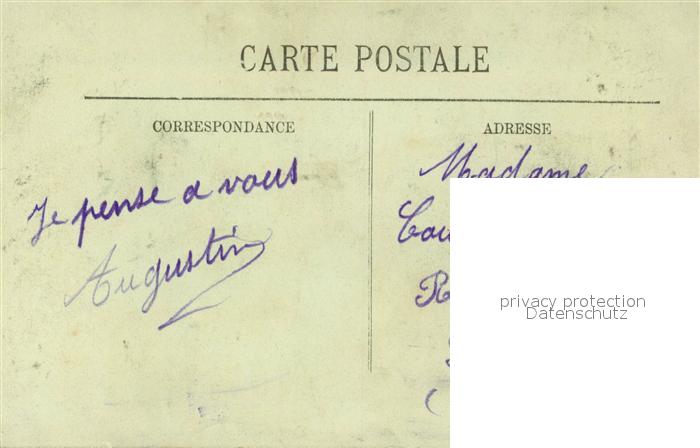 CARTE POSTALE
CORRESPONDANCE
ADRESSE
Je pense a vous
Augustin
Madame
privacy protection
Datenschutz